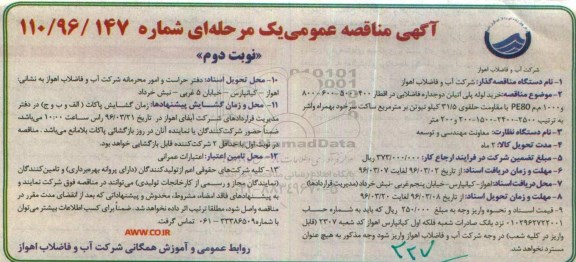 آگهی مناقصه عمومی یک مرحله‌ای شماره ۱۱۰/۹۶/۱۴۷
«نوبت دوم»
شرکت آب و فاضلاب اهواز
۱- نام دستگاه مناقصه‌گذار: شرکت آب و فاضلاب اهواز
۲- موضوع مناقصه: خرید لوله پلی اتیلن دوجداره فاضلابی در اقطار ۴۰۰-۵۰۰-۶۰۰-۸۰۰
و ۱۰۰۰ م.م PE80 با مقاومت حلقوی ۳۱/۵ کیلو نیوتن بر مترمربع ساخت سرخود بهمراه واشر
به ترتیب ۲۵۰۰-۲۴۰۰-۱۵۰۰-۲۰۰ و ۲۰۰ متر
۳- نام دستگاه نظارت: معاونت مهندسی و توسعه
۴- مدت تحویل کالا: ۲ ماه
۵- مبلغ تضمین شرکت در فرایند ارجاع کار: ۳۷۳/۰۰۰/۰۰۰ ریال
۶- مهلت و زمان دریافت اسناد: از تاریخ ۹۶/۰۳/۰۲ لغایت ۹۶/۰۳/۰۷
۷- محل دریافت اسناد: اهواز- کیانپارس- خیابان پنجم غربی- نبش خرداد (مدیریت قراردادها)
۸- مهلت و زمان تحویل اسناد: از تاریخ ۹۶/۰۳/۰۸ لغایت ۹۶/۰۳/۲۰
۹- قیمت اسناد و نحوه واریز وجه به مبلغ ۲۵۰/۰۰۰ ریال که باید به شماره حساب
۰۱۰۲۹۶۲۷۲۲۰۰۱ نزد بانک صادرات شعبه فلکه اول کیانپارس اهواز کد شعبه ۲۳۰۷ (قابل
واریز در کلیه شعب) در وجه شرکت آب و فاضلاب اهواز واریز شود وجه مذکور به هیچ عنوان
مسترد نخواهد شد.
۱۰- محل تحویل اسناد: دفتر حراست و امور محرمانه شرکت آب و فاضلاب اهواز به نشانی:
اهواز - کیانپارس - خیابان ۵ غربی - نبش خرداد
۱۱- محل و زمان گشایش پیشنهادها: زمان گشایش پاکات (الف و ب و ج) در دفتر
مدیریت قراردادهای شرکت آبفای اهواز در تاریخ ۹۶/۰۳/۲۱ راس ساعت ۱۰:۰۰ می‌باشد.
ضمناً حضور شرکت‌کنندگان یا نماینده آنان در روز بازگشائی پاکات بلامانع می‌باشد. مناقصه
در نوبت اول با حداقل ۲ شرکت‌کننده قابل بازگشایی خواهد بود.
۱۲- محل تامین اعتبار: اعتبارات عمرانی
۱۳- کلیه شرکت‌های حقوقی اعم از تولیدکنندگان (دارای پروانه بهره‌برداری) و تامین‌کنندگان
(نمایندگان مجاز و رسمی از کارخانجات تولیدی) می‌توانند در مناقصه فوق شرکت نمایند و
به پیشنهادهای فاقد امضاء، مشروط، مخدوش و پیشنهاداتی که بعد از انقضای مدت مقرر در
مناقصه واصل شود، مطلقا ترتیب اثر داده نخواهد شد. ضمناً برای کسب اطلاعات بیشتر می‌توان
با شماره ۳۳۳۸۶۵۰۹ - ۰۶۱ تماس گرفت.
AWW.CO.IR
روابط عمومی و آموزش همگانی شرکت آب و فاضلاب اهواز